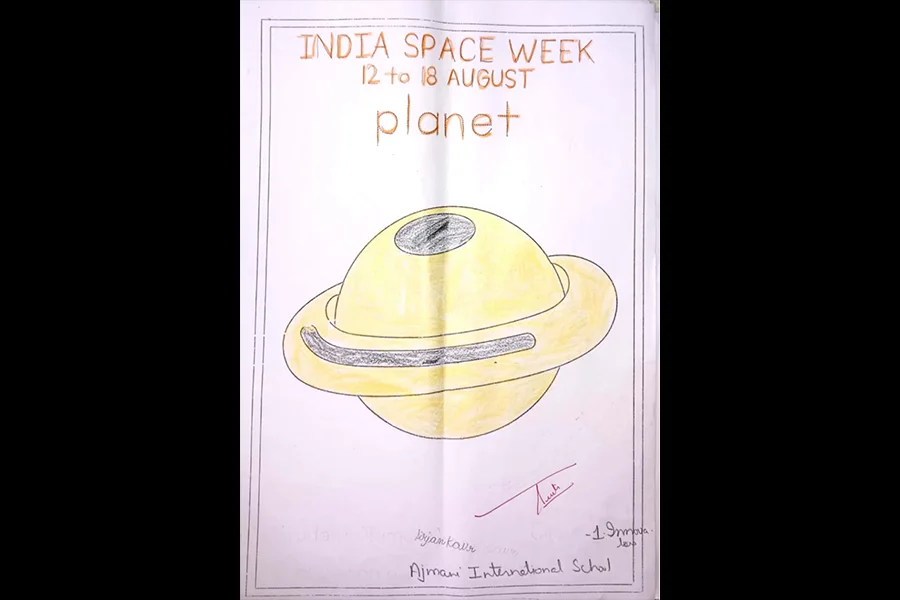 INDIA SPACE WEEK
12 to 18 AUGUST
planet
-1 Innova-
Ajmani International Schol